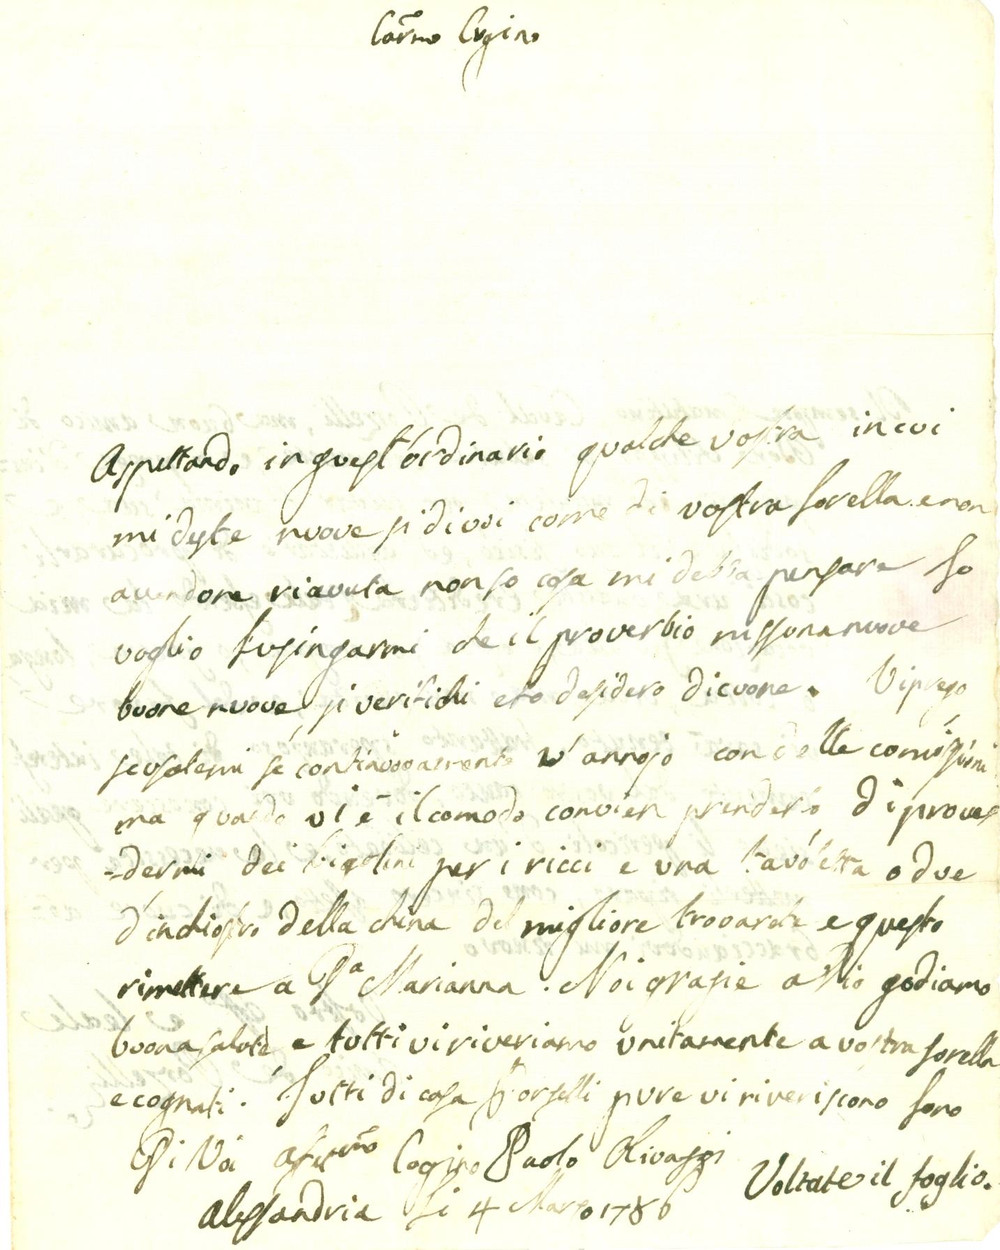 Carmo Cugino
Aspettando in quest'ordinario qualche vostra in cui
mi dyste nuove si di voi come di vostra sorella. e non
avendone riavuta non so cosa mi debba pensare Io
voglio lusingarmi che il proverbio nissuna nuove
buone nuove si verifichi e lo desidero di cuore. Vi prego
scusolemi se continovamente v'annojo con delle comissioni
ma quando vi è il comodo convien prenderlo di prove
=dermi dei bigolini per i ricci e una tavoletta o due
d'inchiostro della china del migliore trovarete e questo
rimettere a Da Marianna. Noi grazie a Dio godiamo
buona salute e tutti vi riveriamo unitamente a vostra sorella
e cognati. Tutti di casa Porselli pure vi riveriscono sono
Di Voi affmo Cogino Paolo Rivazzi
Voltate il foglio.
Alessandria li 4 Marzo 1786